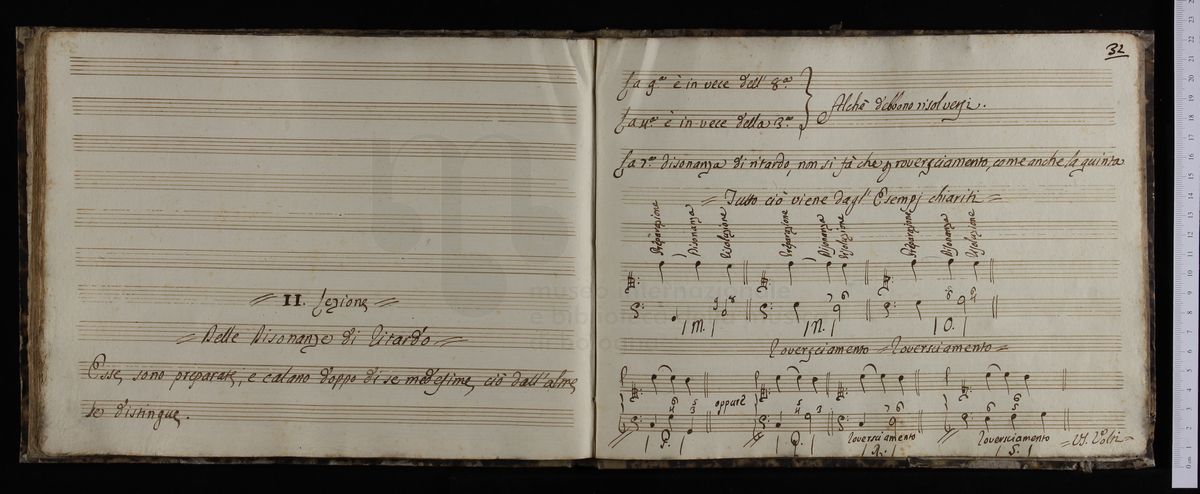 II. Lezione
Delle Disonanze di Ritardo
Esse, sono preparate, e calano doppo di se medesime, ciò dall'altre,
se distingue.
32
La 9.a è in vece dell' 8.a
La 4.a è in vece della 3.a
Alchè debbono risolversi.
La 7.a disonanza di ritardo, non si fà che roversciamento, come anche la quinta
Tutto ciò viene dagl' Esempj chiariti
Preparazione Disonanza Risoluzione Preparazione Disonanza Risoluzione Preparazione Disonanza Risoluzione
9 8 7 6
| m. | | n. | | O. |
Roversciamento Roversciamento
oppure
6 5
4 3
5
4 3
7 6
6 6
5
| P. | | Q. | Roversciamento Roversciamento
| R. | | S. |
V. Volti
museo internazionale
e biblioteca della musica
di bologna